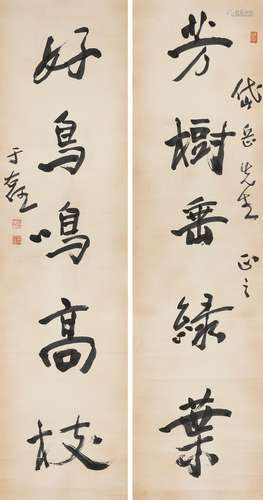 芳樹垂緑葉
岱岳先生 正之
好鳥鳴高枝
于右任